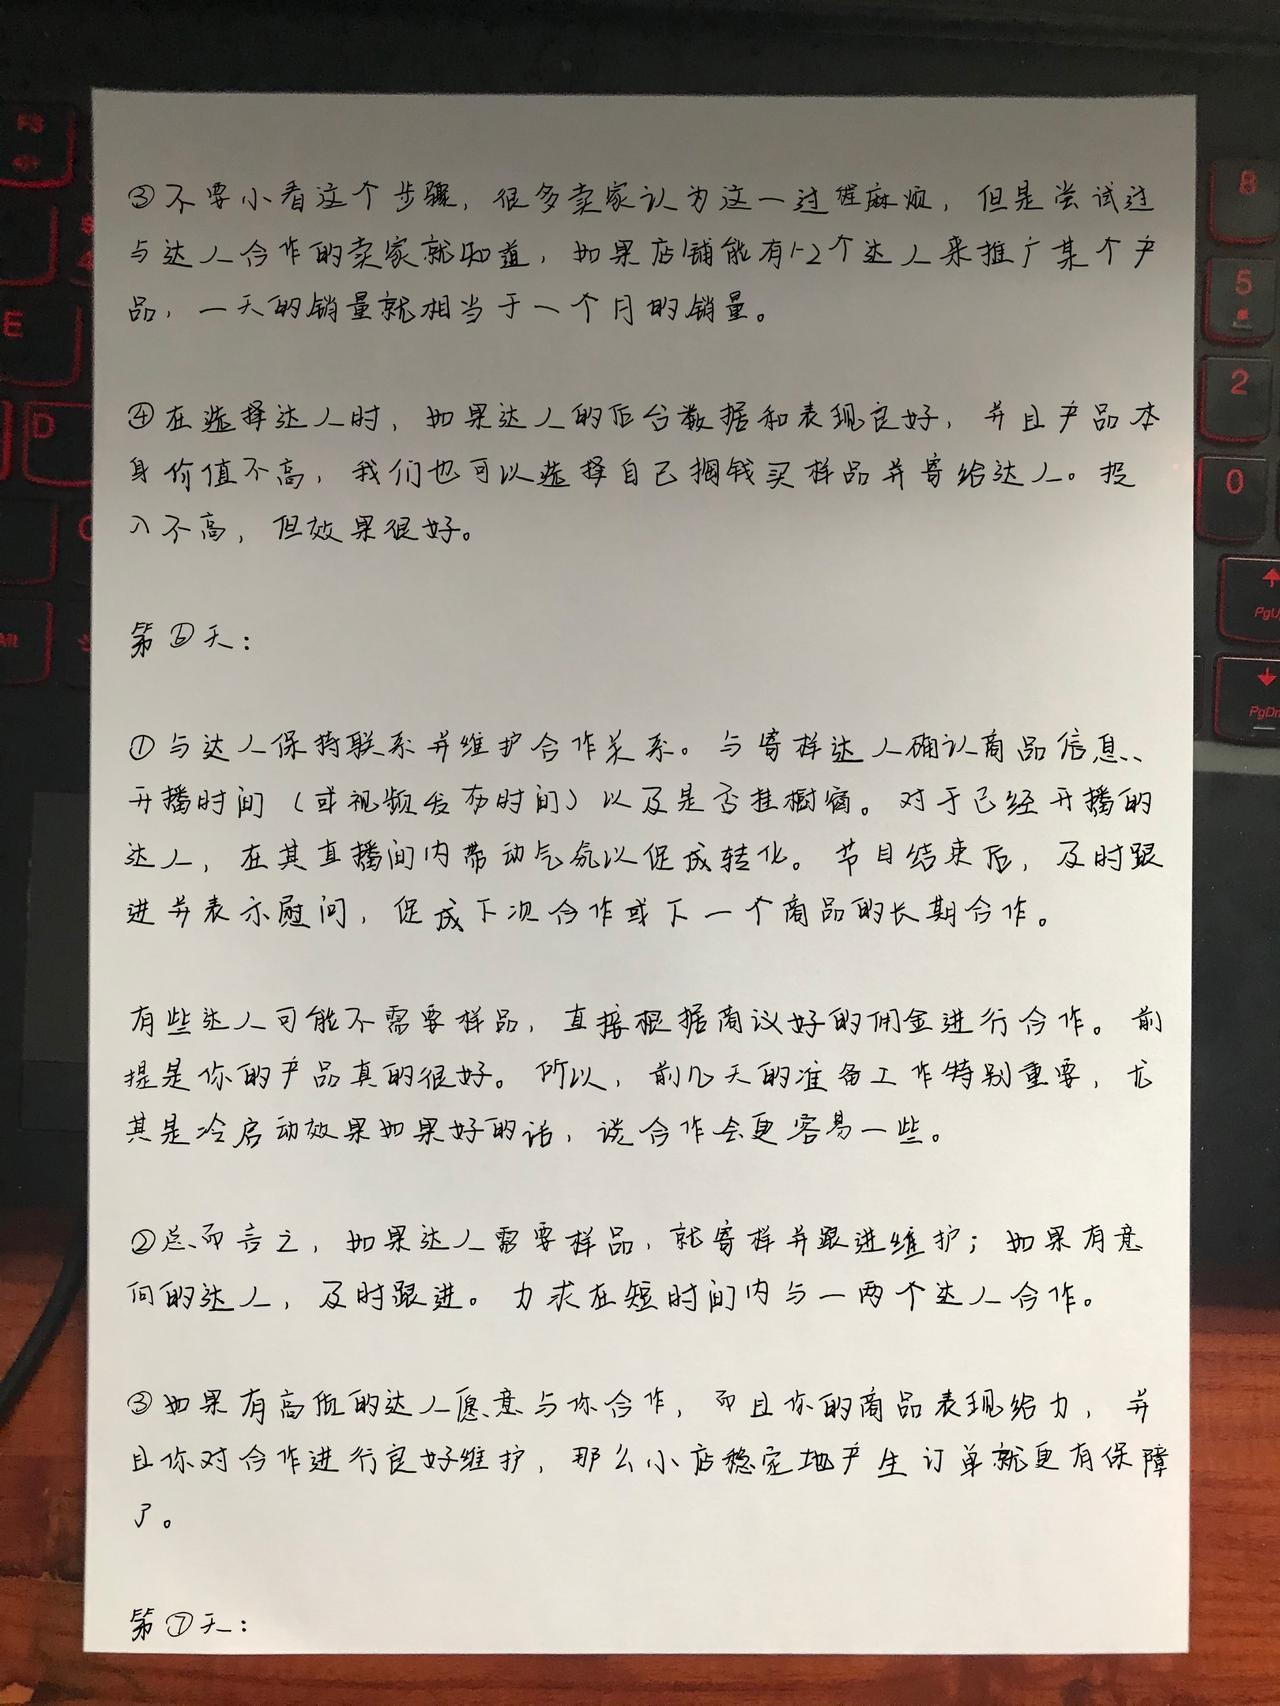 ③不要小看这个步骤，很多卖家认为这一过程麻烦，但是尝试过
与达人合作的卖家就知道，如果店铺能有1-2个达人来推广某个产
品，一天的销量就相当于一个月的销量。
④在选择达人时，如果达人的后台数据和表现良好，并且产品本
身价值不高，我们也可以选择自己掏钱买样品并寄给达人。投
入不高，但效果很好。
第⑥天：
①与达人保持联系并维护合作关系。与寄样达人确认商品信息、
开播时间（或视频发布时间）以及是否挂橱窗。对于已经开播的
达人，在其直播间内带动气氛以促成转化。节目结束后，及时跟
进并表示慰问，促成下次合作或下一个商品的长期合作。
有些达人可能不需要样品，直接根据商议好的佣金进行合作。前
提是你的产品真的很好。所以，前几天的准备工作特别重要，尤
其是冷启动效果如果好的话，谈合作会更容易一些。
②总而言之，如果达人需要样品，就寄样并跟进维护；如果有意
向的达人，及时跟进。力求在短时间内与一两个达人合作。
③如果有高质的达人愿意与你合作，而且你的商品表现给力，并
且你对合作进行良好维护，那么小店稳定地产生订单就更有保障
了。
第⑦天：
F8
E
D
Alt
8
5
2
0
PgU
PgDn